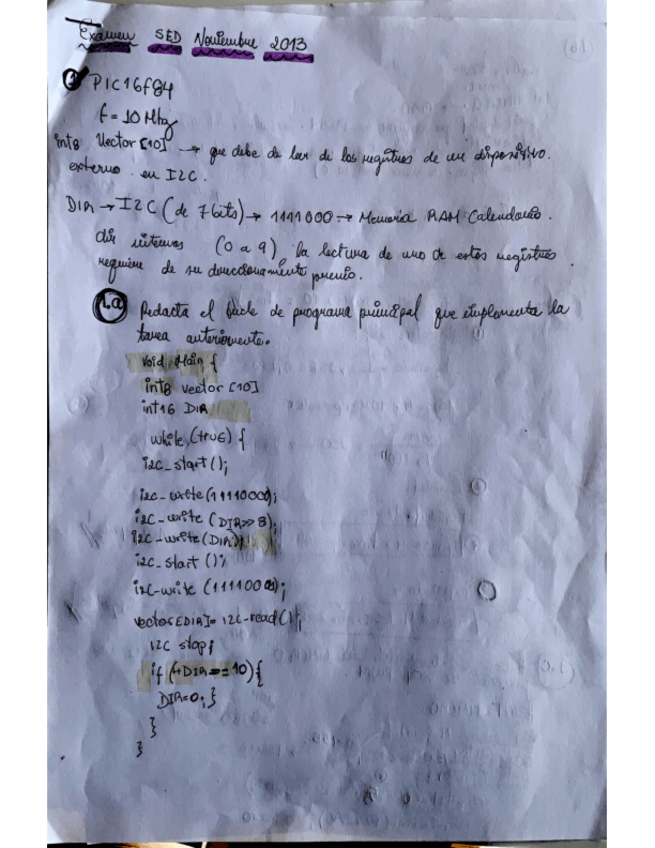 Examen SED Noviembre 2013
1 PIC16f84
f = 10 Mhz
int8 Vector [10] → que debe de leer de los registros de un dispositivo
externo en I2C.
DIR → I2C (de 7 bits) → 1111000 → Memoria RAM Calendario.
dir internas (0 a 9) la lectura de uno de estos registros
requiere de su direccionamiento previo.
1.a Redacta el bucle de programa principal que implementa la
tarea anteriormente.
Void Main {
int8 vector [10]
int16 DIR
while (true) {
i2c_start();
i2c_write(11110000);
i2c_write (DIR>>8);
i2c_write(DIR);
i2c_start ();
i2c_write (11110001);
vector[DIR]= i2c_read();
I2C stop;
if (++DIR == 10){
DIR=0; }
}
}